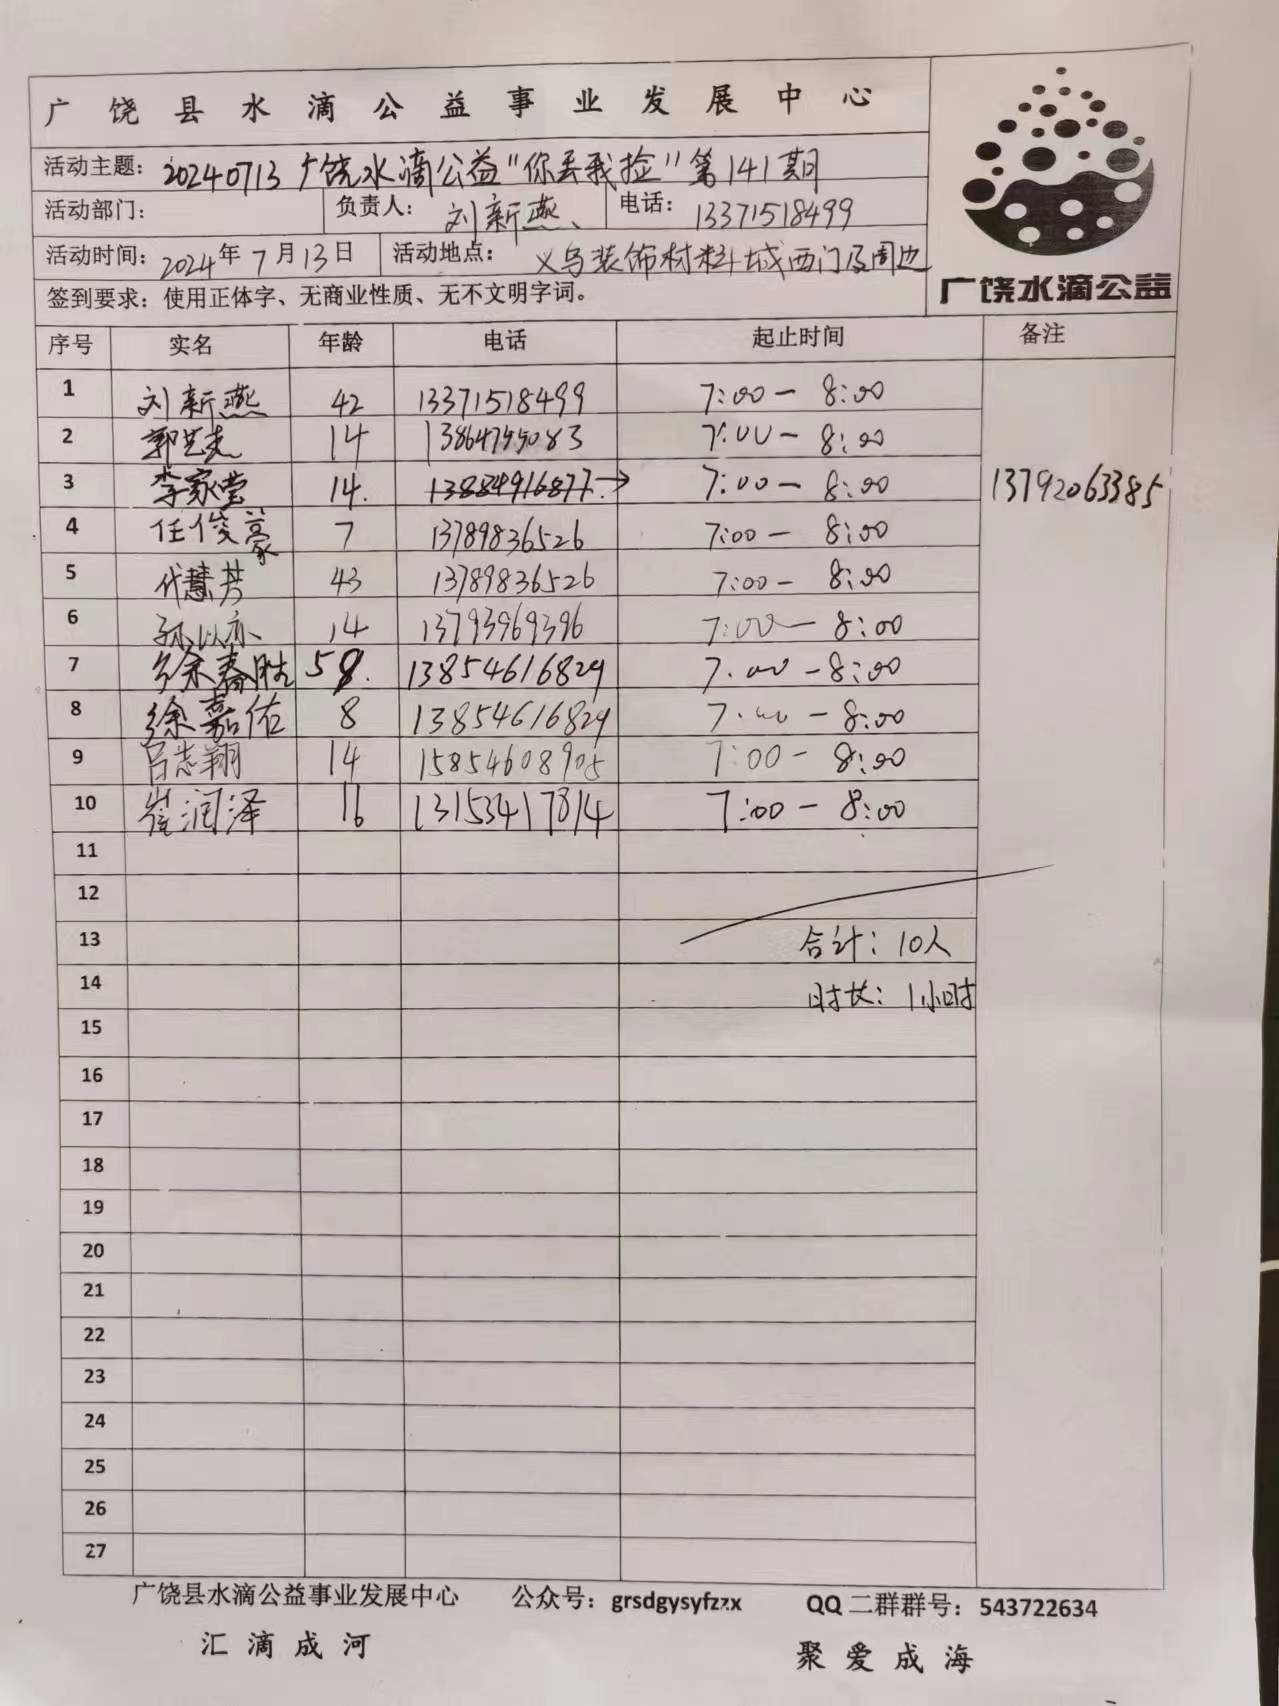 广饶县水滴公益事业发展中心
活动主题: 20240713广饶水滴公益"你丢我捡"第141期
活动部门: 负责人: 刘新燕、 电话: 13371518499
活动时间: 2024年7月13日 活动地点: 义乌装饰材料城西门及周边
广饶水滴公益
签到要求: 使用正体字、无商业性质、无不文明字词。
序号 实名 年龄 电话 起止时间 备注
1 刘新燕 42 13371518499 7:00-8:00
2 郭艺 14 7:00-8:00
3 李家莹 14. 13884916877.→ 7:00-8:00 13792063385
4 任俊蒙 7 13789836526 7:00-8:00
5 代慧芳 43 13789836526 7:00-8:00
6 孙以亦 14 13793969396 7:00-8:00
7 徐春胜 58. 13854616829 7:00-8:00
8 徐嘉佑 8 13854616829 7:00-8:00
9 吕志翔 14 15854608905 7:00-8:00
10 崔润泽 16 13153417814 7:00-8:00
11
12
13 合计: 10人
14 时长: 1小时
15
16
17
18
19
20
21
22
23
24
25
26
27
广饶县水滴公益事业发展中心 公众号: grsdgysyfzzx QQ二群群号: 543722634
汇滴成河 聚爱成海